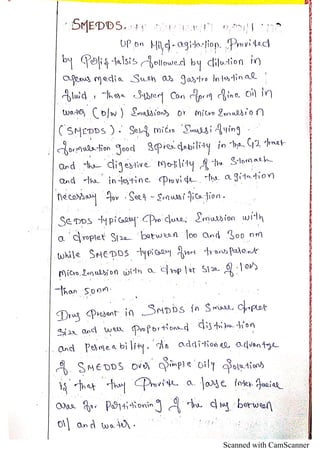 SMEDDS.
UP on Mild-agitation. Provided
by Peristalsis followed by dilution in
aqeous media Such as gastro Intestinal
fluid, these System Can form fine oil in
water (O/W) Emulsions or micro Emulsion
(SMEDDS). Self micro Emulsifying
formulation good Spreadability in the GI tract
and the digestive motility of the Stomach
and the intestine Provide the agitation
necessary for Self-Emulsification.
SEDDS typically Produce Emulsion with
a droplet size between 100 and 300 nm
while SMEDDS typically form transparent
micro Emulsion with a droplet size of less
than 50nm.
Drug Present in SMDDS in Small droplet
Size and well proportioned distribution
and Permeability. The additional advantage
of SMEDDS over Simple oily Solutions
is that they Provide a large interfacial
area for Partitioning of the drug between
Oil and water.
Scanned with CamScanner